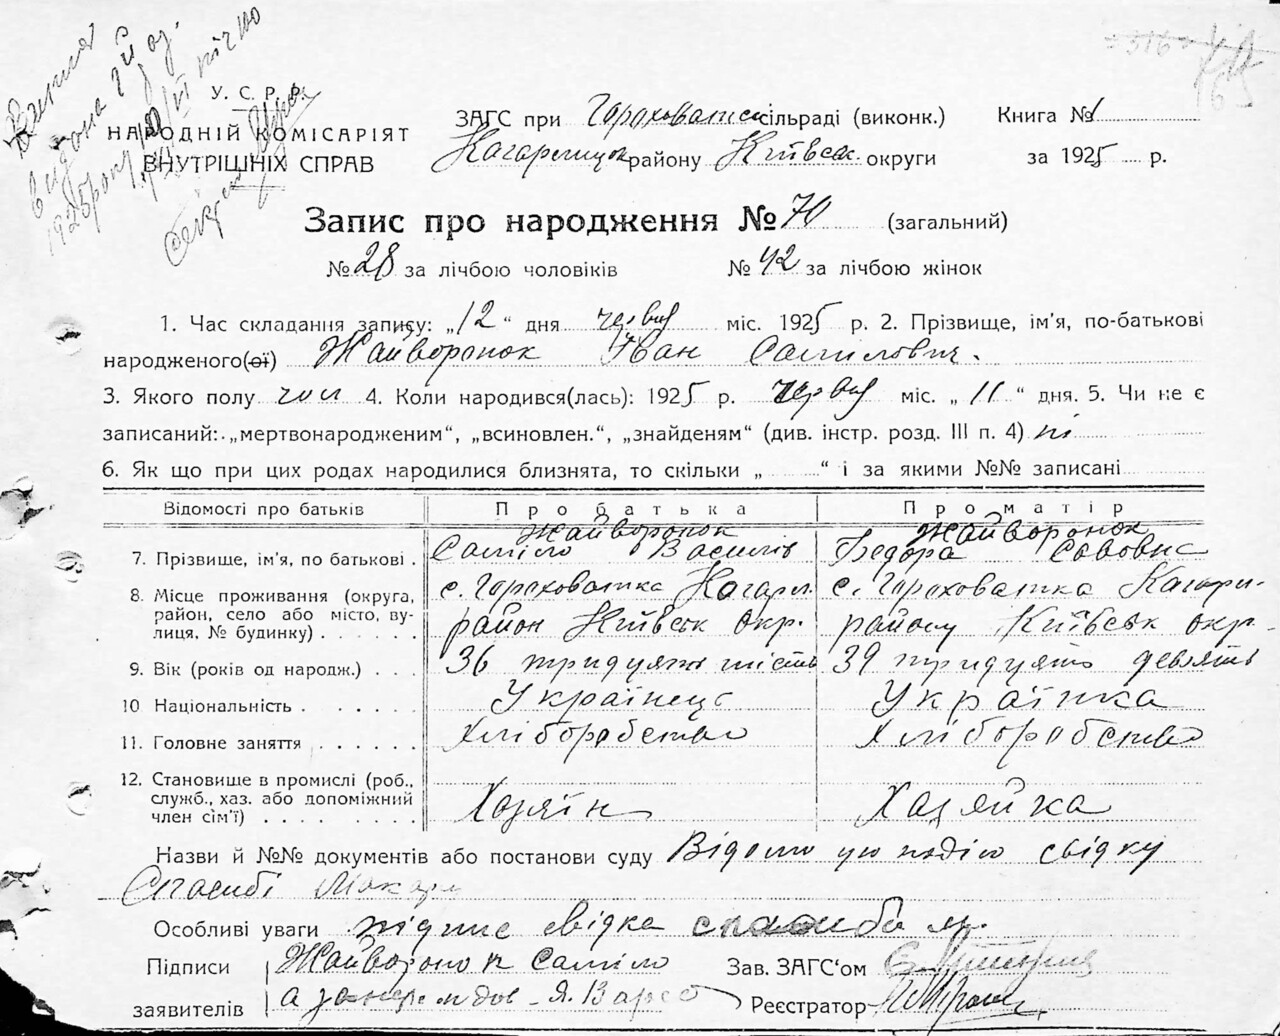 Виписа
видана 1925 року
У. С. Р. Р.
НАРОДНІЙ КОМІСАРІЯТ
ВНУТРІШНІХ СПРАВ
ЗАГС при Гороховатск сільраді (виконк.) Книга № 1
Кагарлицьк району Київськ. округи за 1925 р.
Запис про народження № 70 (загальний)
№ 28 за лічбою чоловіків № 42 за лічбою жінок
1. Час складання запису: „12“ дня червня міс. 1925 р. 2. Прізвище, ім'я, по-батькові
народженого(ої) Жайворонок Іван Самилович.
3. Якого полу чол 4. Коли народився(лась): 1925 р. червня міс. „11“ дня. 5. Чи не є
записаний: „мертвонародженим“, „всиновлен.“, „знайденям“ (див. інстр. розд. III п. 4) ні
6. Як що при цих родах народилися близнята, то скільки „ “ і за якими №№ записані
Відомості про батьків Про батька Про матір
7. Прізвище, ім'я, по батькові . Жайворонок Саміло Василів Жайворонок Федора Савовна
8. Місце проживання (округа, район, село або місто, вулиця, № будинку) . . . . . с. Гороховатка Кагарл. район Київськ окр. с. Гороховатка Кагарл. району Київськ окр.
9. Вік (років од народж.) . . . 36 тридцять шість 39 тридцять девять
10 Національність . . . . . . Українець Українка
11. Головне заняття . . . . . . Хліборобство Хліборобство
12. Становище в промислі (роб., служб., хаз. або допоміжний член сім'ї) . . . . . . . . Хозяїн Хазяйка
Назви й №№ документів або постанови суду Відомо цю подію свідку
Спасибі Макару
Особливі уваги підпис свідка спасиба
Підписи Жайворонок Саміло Зав. ЗАГС'ом
заявителів Реєстратор